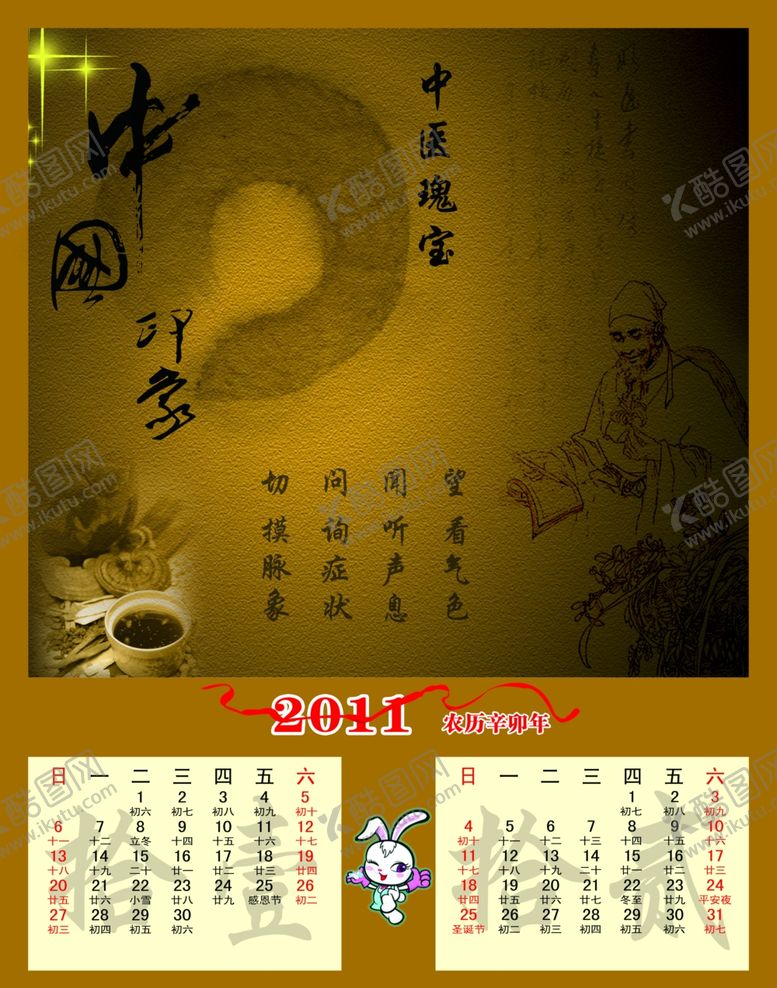 中國印象
中医瑰宝
望 看气色
闻 听声息
问 询症状
切 摸脉象
酷图网
www.ikutu.com
2011 农历辛卯年
拾壹
日 一 二 三 四 五 六
1 2 3 4 5
初六 初七 初八 初九 初十
6 7 8 9 10 11 12
十一 十二 立冬 十四 十五 十六 十七
13 14 15 16 17 18 19
十八 十九 二十 廿一 廿二 廿三 廿四
20 21 22 23 24 25 26
廿五 廿六 小雪 廿八 廿九 感恩节 初二
27 28 29 30
初三 初四 初五 初六
拾贰
日 一 二 三 四 五 六
1 2 3
初七 初八 初九
4 5 6 7 8 9 10
初十 十一 十二 十三 十四 十五 十六
11 12 13 14 15 16 17
十七 十八 十九 二十 廿一 廿二 廿三
18 19 20 21 22 23 24
廿四 廿五 廿六 廿七 冬至 廿九 平安夜
25 26 27 28 29 30 31
圣诞节 初二 初三 初四 初五 初六 初七